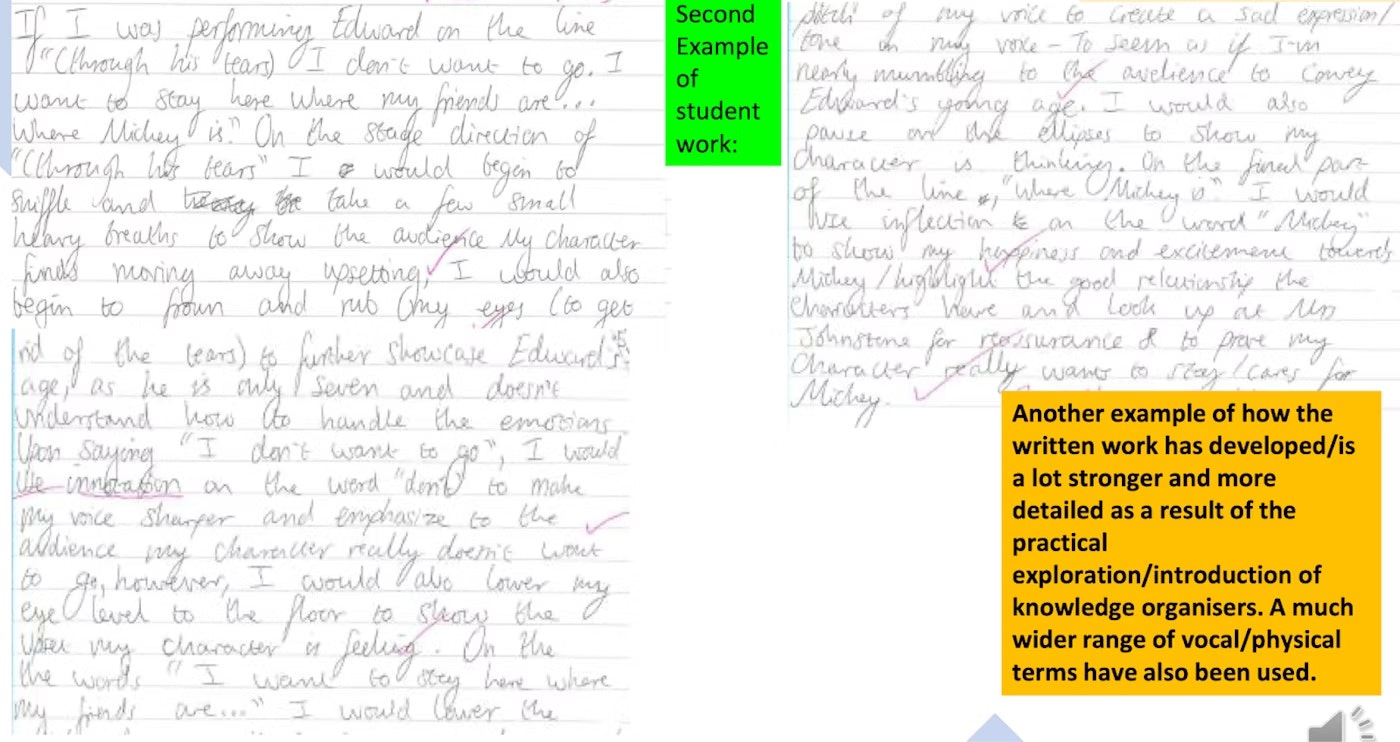 If I was performing Edward on the line
"(through his tears) I don't want to go. I
want to stay here where my friends are...
Where Mickey is". On the stage direction of
"(through his tears" I would begin to
sniffle and take a few small
heavy breaths to show the audience my character
finds moving away upsetting, I would also
begin to frown and rub my eyes (to get
rid of the tears) to further showcase Edward's
age, as he is only seven and doesn't
understand how to handle the emotions.
Upon saying "I don't want to go", I would
use on the word "don't" to make
my voice sharper and emphasize to the
audience my character really doesn't want
to go, however, I would also lower my
eye level to the floor to show the
upset my character is feeling. On the
the words "I want to stay here where
my friends are..." I would lower the
pitch of my voice to create a sad expression/
tone in my voice - To seem as if I'm
nearly mumbling to the audience to convey
Edward's young age. I would also
pause on the ellipses to show my
character is thinking. On the final part
of the line, "Where Mickey is" I would
use inflection on the word "Mickey"
to show my happiness and excitement towards
Mickey/highlight the good relationship the
characters have and look up at Mrs
Johnstone for reassurance & to prove my
character really wants to stay/cares for
Mickey.
Second
Example
of
student
work:
Another example of how the
written work has developed/is
a lot stronger and more
detailed as a result of the
practical
exploration/introduction of
knowledge organisers. A much
wider range of vocal/physical
terms have also been used.